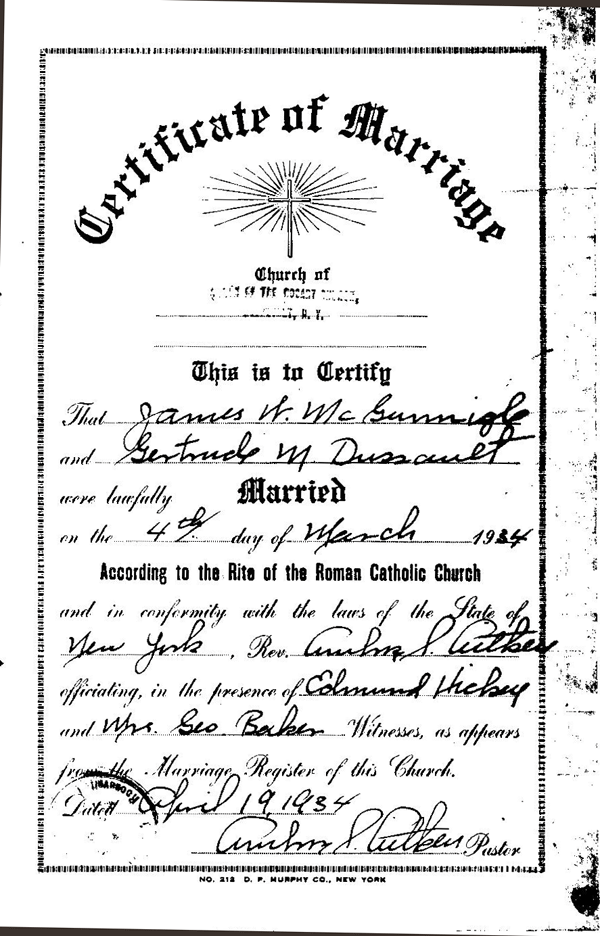 Certificate of Marriage
Church of
OF THE ROSARY CHURCH,
N. Y.
This is to Certify
That James W. McGunnigle
and Gertrude M Dussault
were lawfully Married
on the 4th day of March 1934
According to the Rite of the Roman Catholic Church
and in conformity with the laws of the State of
New York, Rev.
officiating, in the presence of Edmund Hickey
and Mrs. Geo Baker Witnesses, as appears
from the Marriage Register of this Church.
Dated April 19, 1934
Pastor
NO. 212 D. P. MURPHY CO., NEW YORK